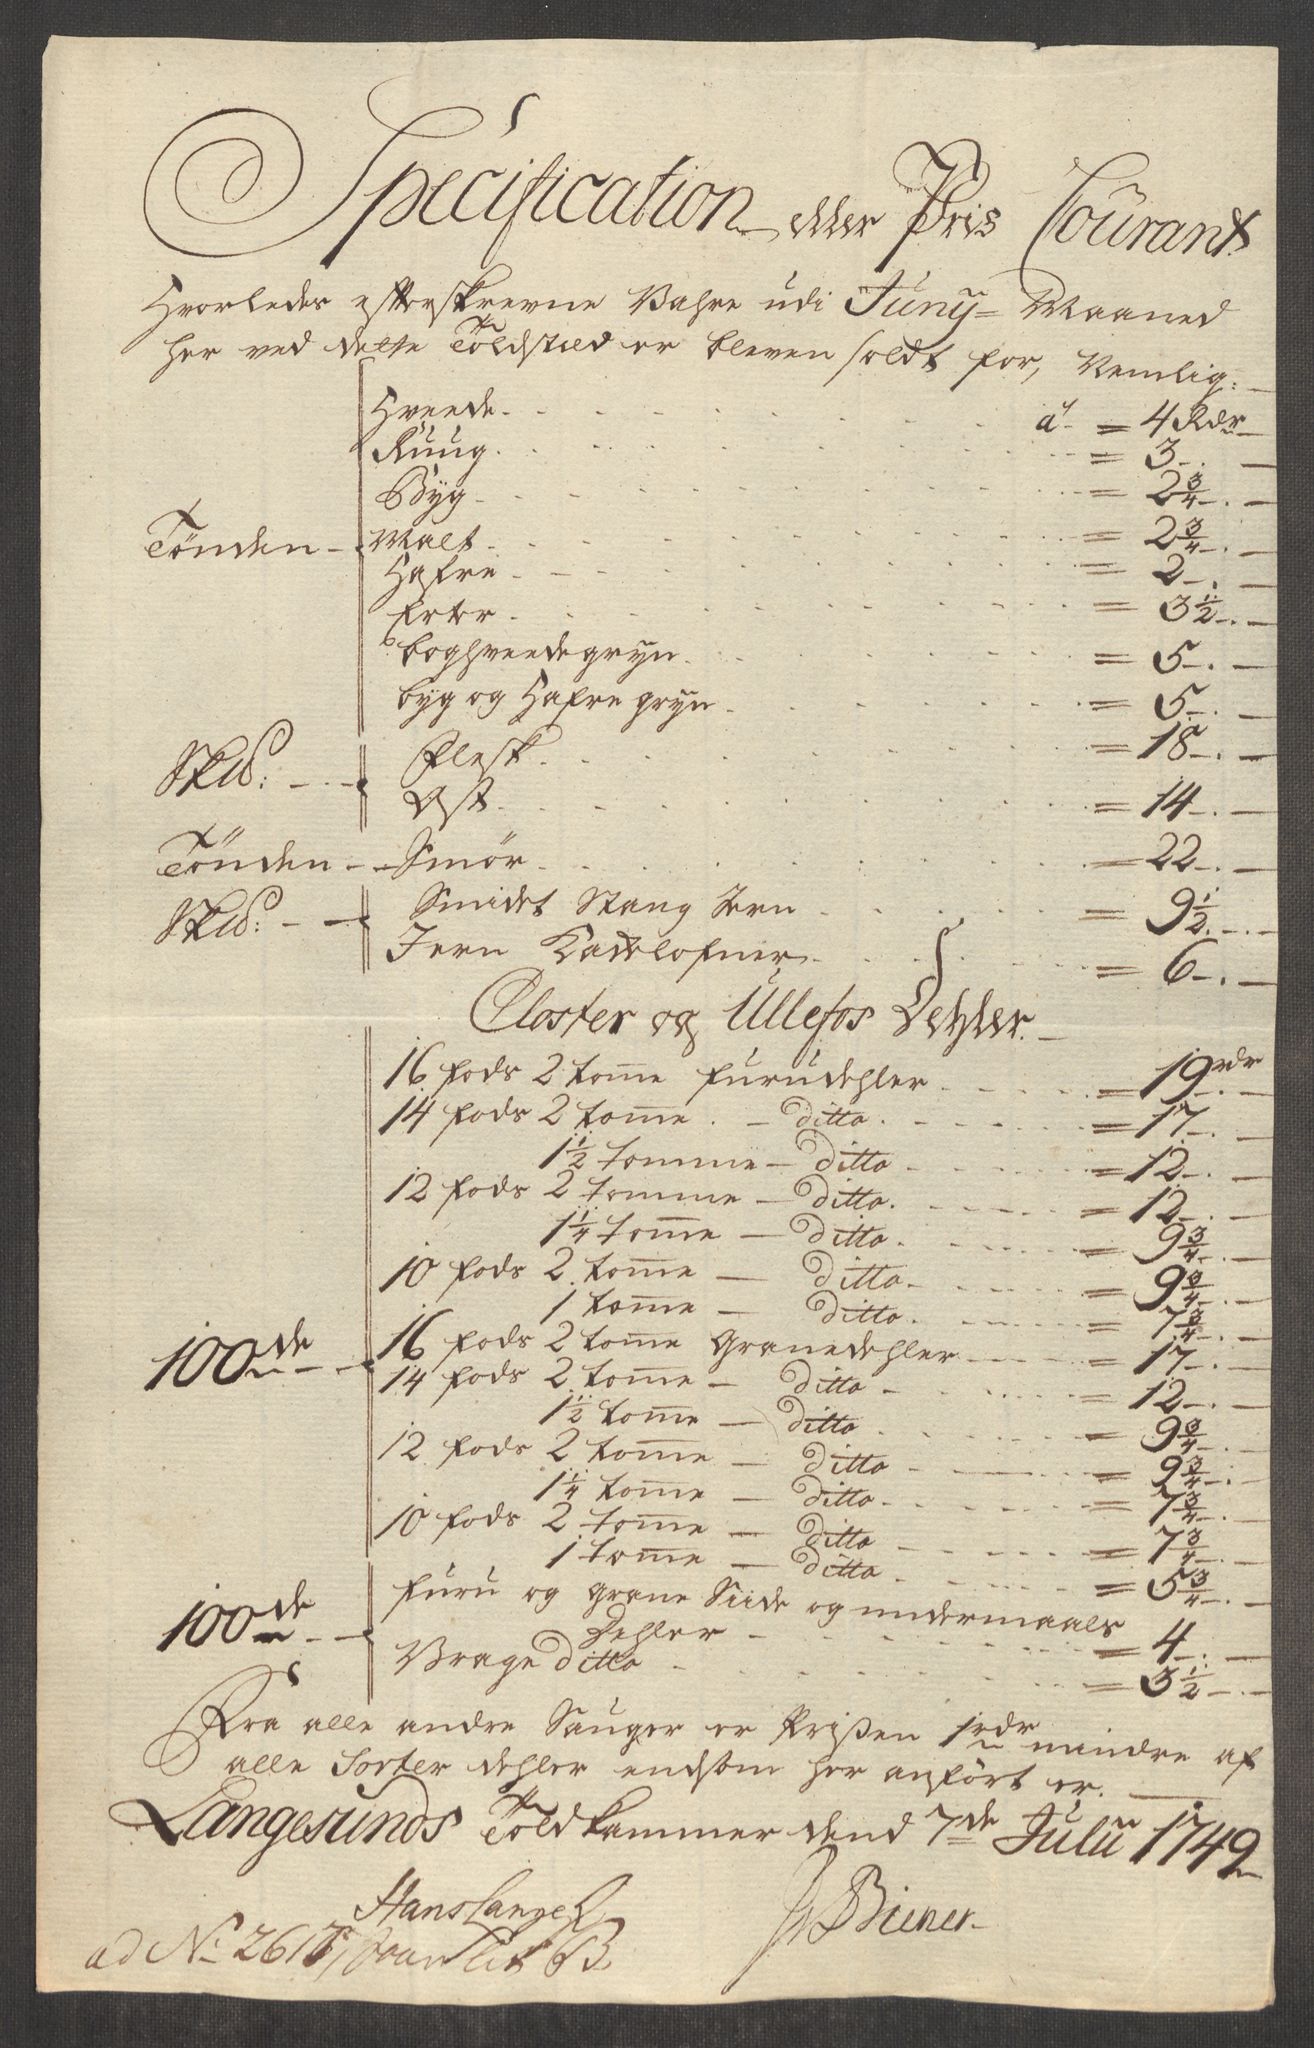 Specification eller Pris Courant
Hvorledes efterskrevne Vahre udi Junÿ Maaned
her ved dette Toldsted er bleven soldt for, Nemlig:
Hveede . . . à = 4 Rdr
Ruug . . . = 3 -
Byg . . . = 2 3/4 -
Tønden - Malt . . . = 2 3/4 -
Hafre . . . = 2 -
Erter . . . = 3 1/2 -
boghveedegryn . . . = 5 -
byg og Hafre gryn . . . = 5 -
Sk℔: - Flesk . . . = 18 -
Ost . . . = 14 -
Tönden - Smør . . . = 22 -
Sk℔: - Smidet Stang Jern . . . = 9 1/2 -
Jern Kackelofner . . . = 6 -
Closter og Ullefos Dehler
16 fods 2 tom̄e furudehler . . . = 19 rdr
14 fods 2 tom̄e - ditto . . . = 17 -
1 1/2 tomme - ditto . . . = 12 -
12 fods 2 tomme - ditto . . . = 12 -
1 1/4 tom̄e - ditto . . . = 9 3/4 -
10 fods 2 tom̄e - ditto . . . = 9 3/4 -
1 tom̄e - ditto . . . = 7 3/4 -
100de - 16 fods 2 tom̄e Granedehler . . . = 17 -
14 fods 2 tom̄e - ditto . . . = 12 -
1 1/2 tom̄e - ditto . . . = 9 3/4 -
12 fods 2 tom̄e - ditto . . . = 9 3/4 -
1 1/4 tom̄e - ditto . . . = 7 3/4 -
10 fods 2 tom̄e - ditto . . . = 7 3/4 -
1 tom̄e - ditto . . . = 5 3/4 -
furu og grane Siide og undermaals
100de - Dehler . . . = 4 -
Vrage ditto . . . = 3 1/2 -
Fra alle andre Sauger er Prißen 1 rdr mindre af
alle Sorter dehler endsom her anført er.
Langesunds Toldkammer dend 7de Julii 1749
Hans Lange
Biener
ad No 2617 Lit B.